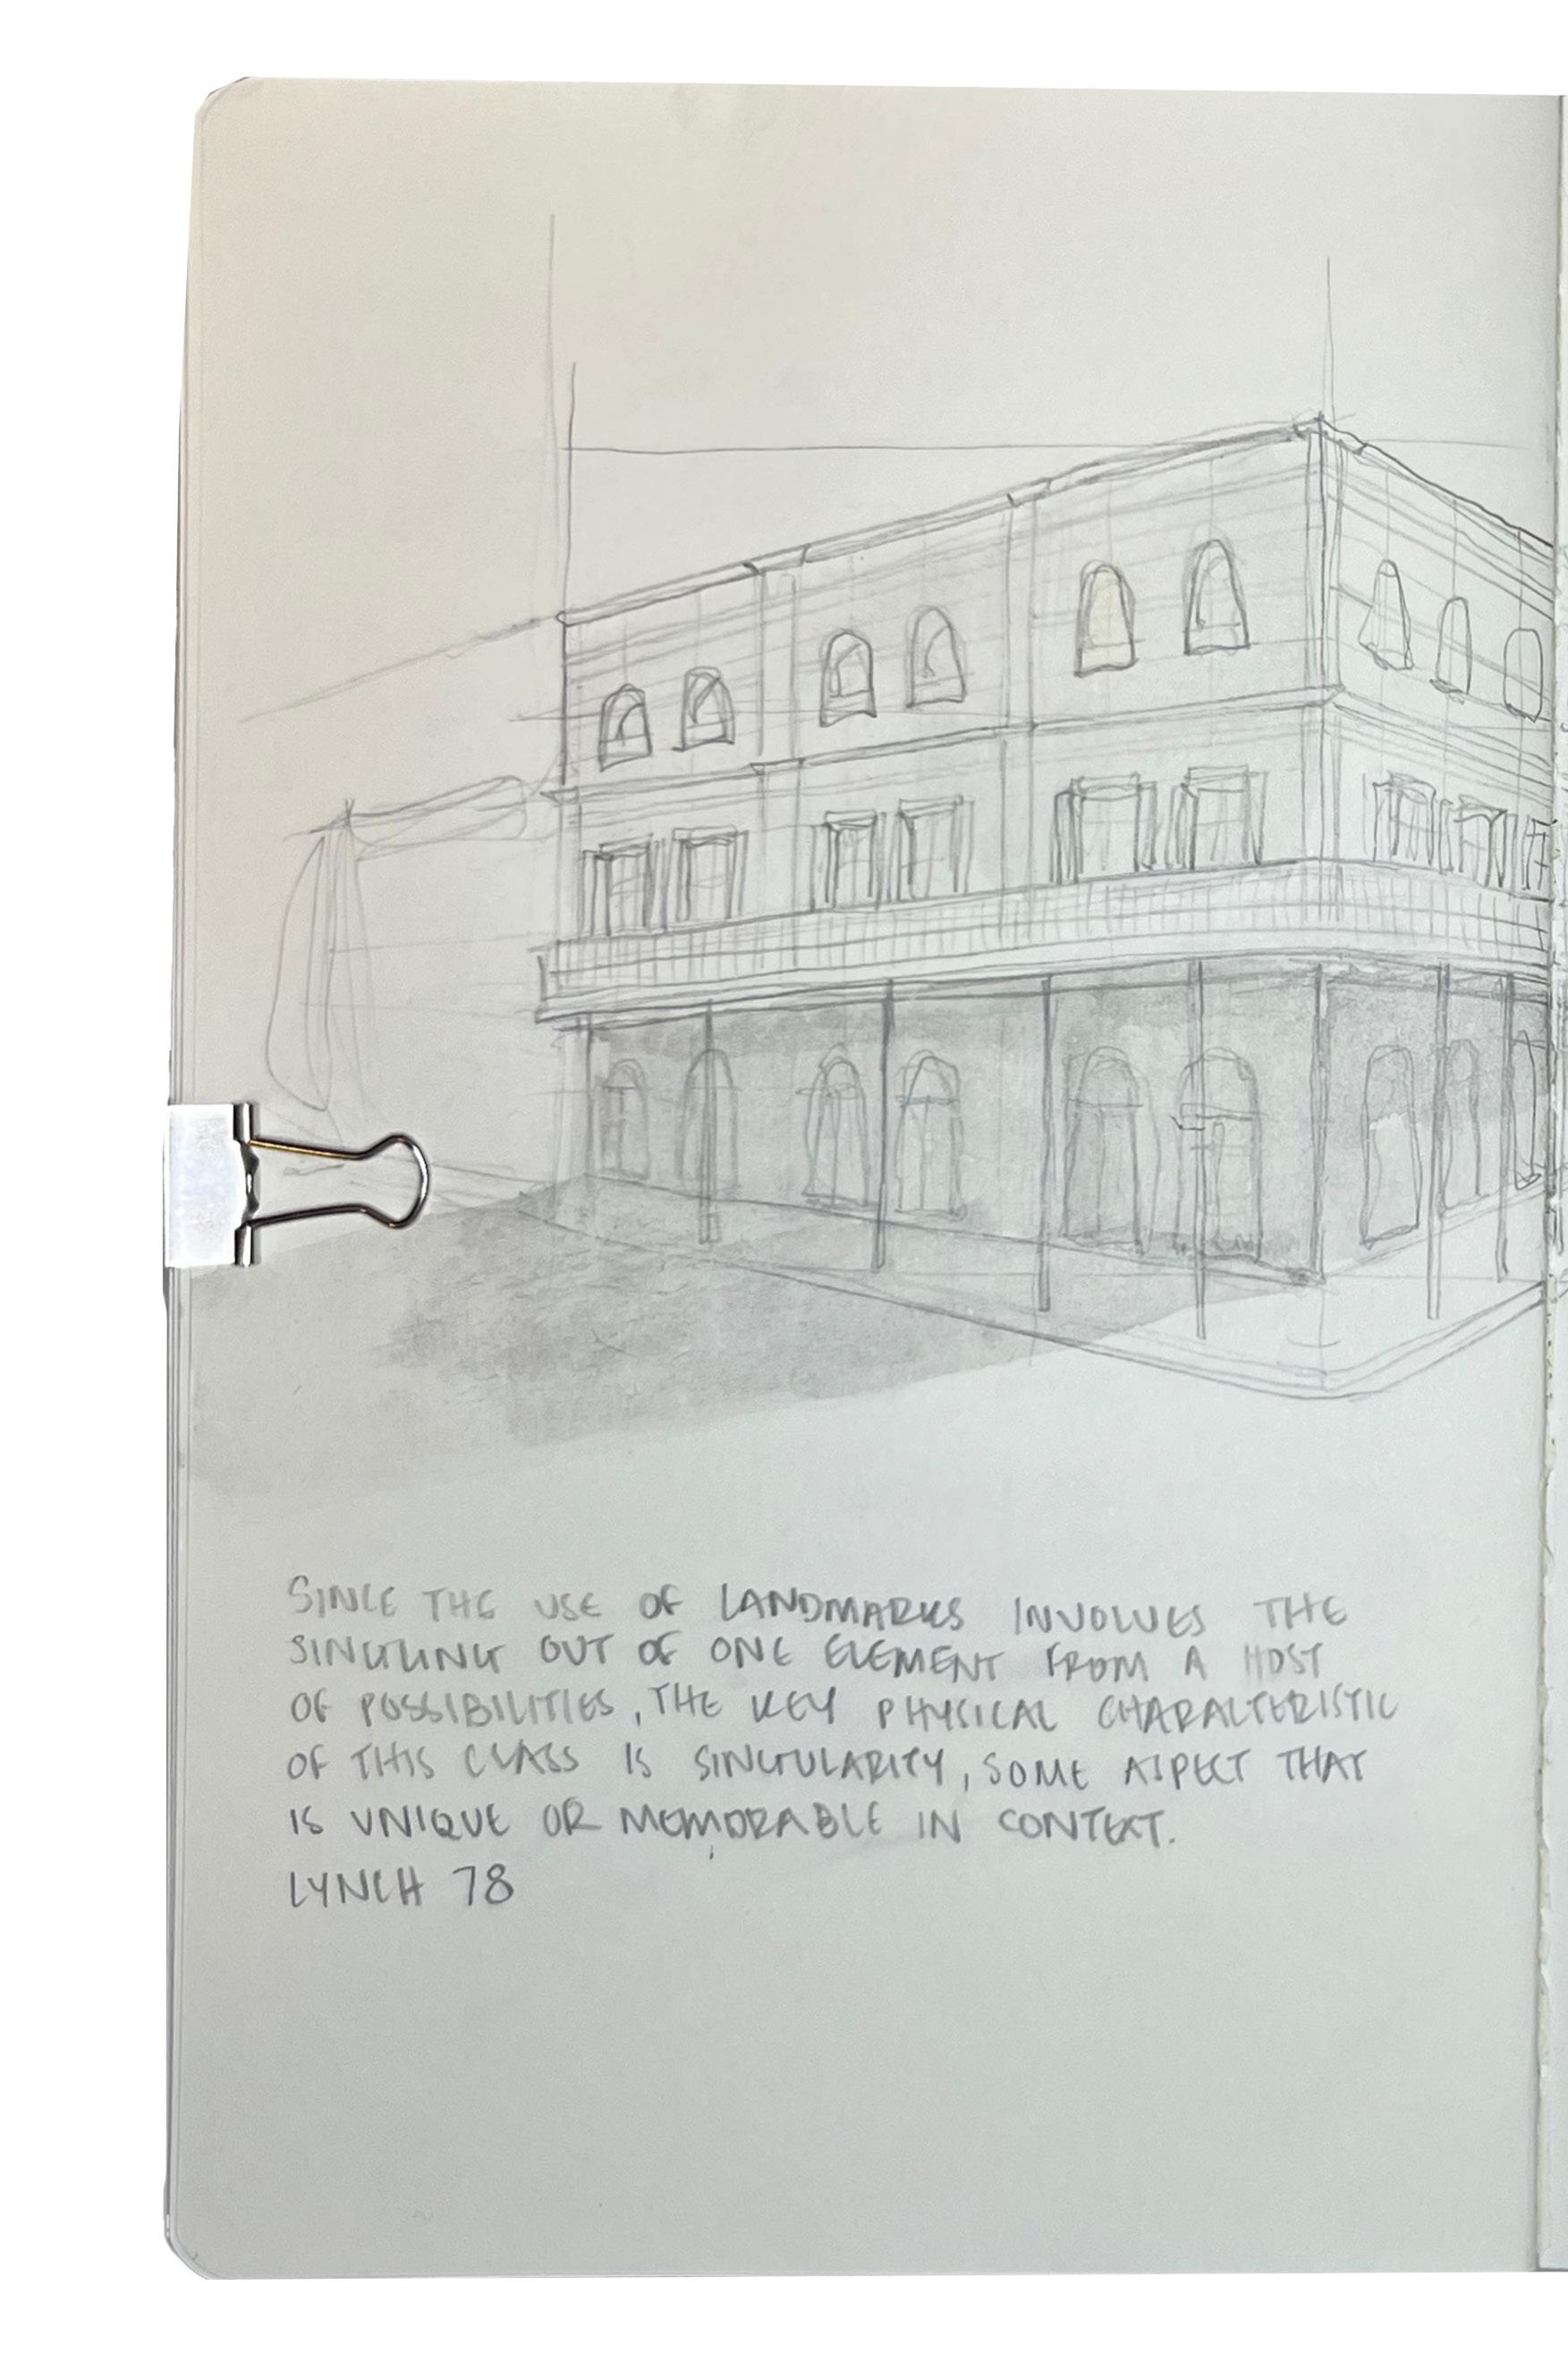 SINCE THE USE OF LANDMARKS INVOLVES THE
SINGLING OUT OF ONE ELEMENT FROM A HOST
OF POSSIBILITIES, THE KEY PHYSICAL CHARACTERISTIC
OF THIS CLASS IS SINGULARITY, SOME ASPECT THAT
IS UNIQUE OR MEMORABLE IN CONTEXT.
LYNCH 78